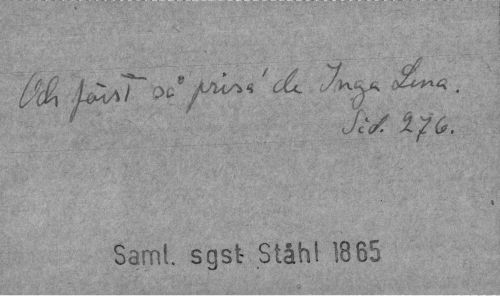 Och först så prisa' de Inga Lena.
Sid. 276.
Saml. sgst Ståhl 1865